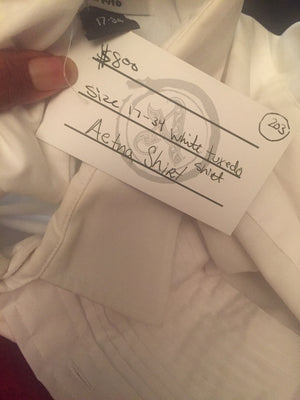 17-34
$800
203
Size 17-34 white tuxedo
shirt
Aetna Shirt